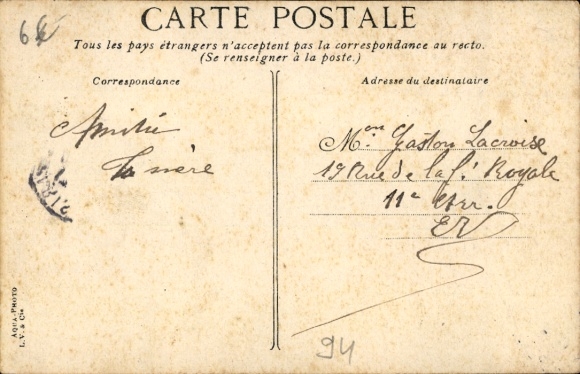 6€
CARTE POSTALE
Tous les pays étrangers n'acceptent pas la correspondance au recto.
(Se renseigner à la poste.)
Correspondance
Amitié
Ta mère
Adresse du destinataire
Mon. Gaston Lacroise
19 Rue de la f.ie Royale
11e
EV
AQUA-PHOTO
L.V. & Cie
94